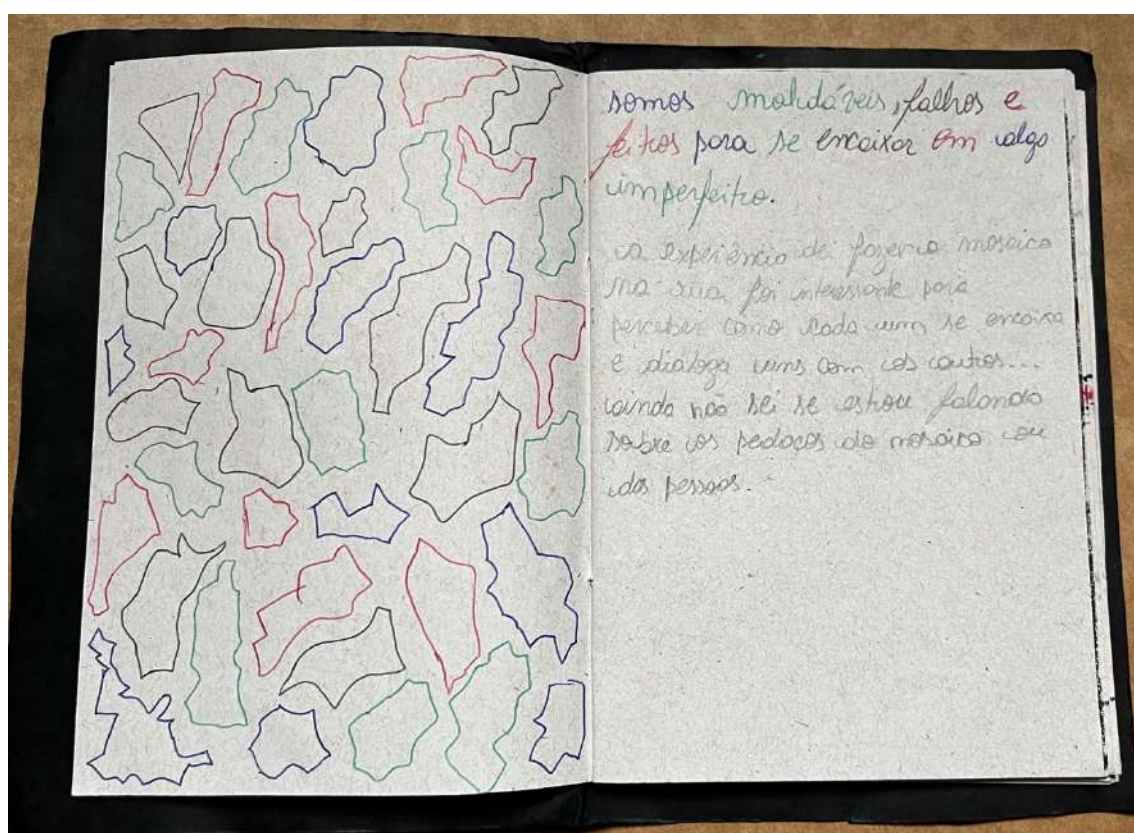 somos moldáveis, falhos e
feitos para se encaixar em algo
imperfeito.
a experiência de fazer o mosaico
na rua, foi interessante para
perceber como cada um se encaixa
e dialoga uns com os outros...
ainda não sei se estou falando
sobre os pedaços do mosaico ou
das pessoas.